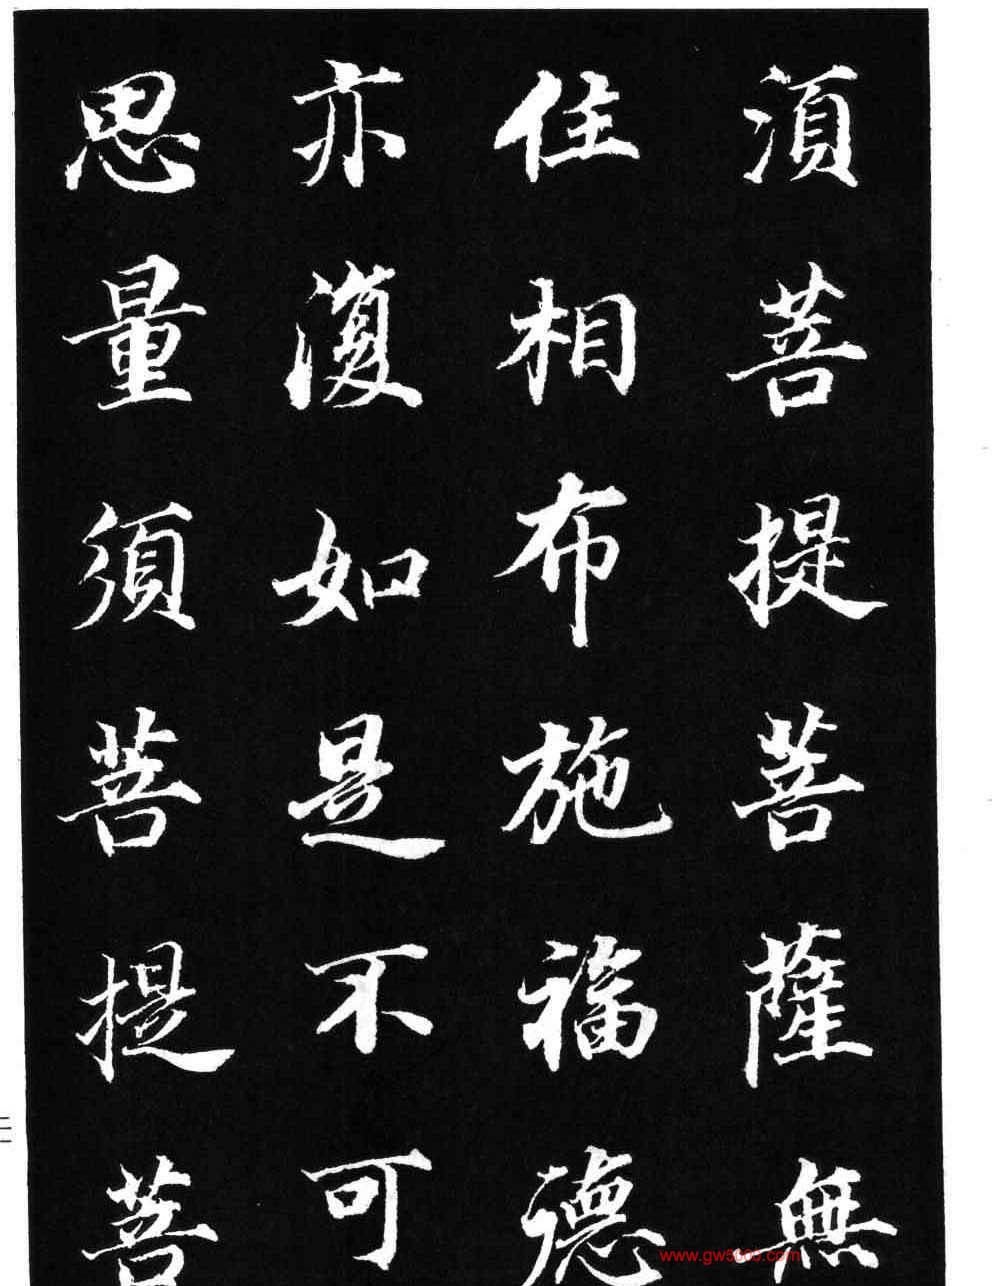 須菩提菩薩無
住相布施福德
亦復如是不可
思量須菩提菩
二一
www.gw5000.com